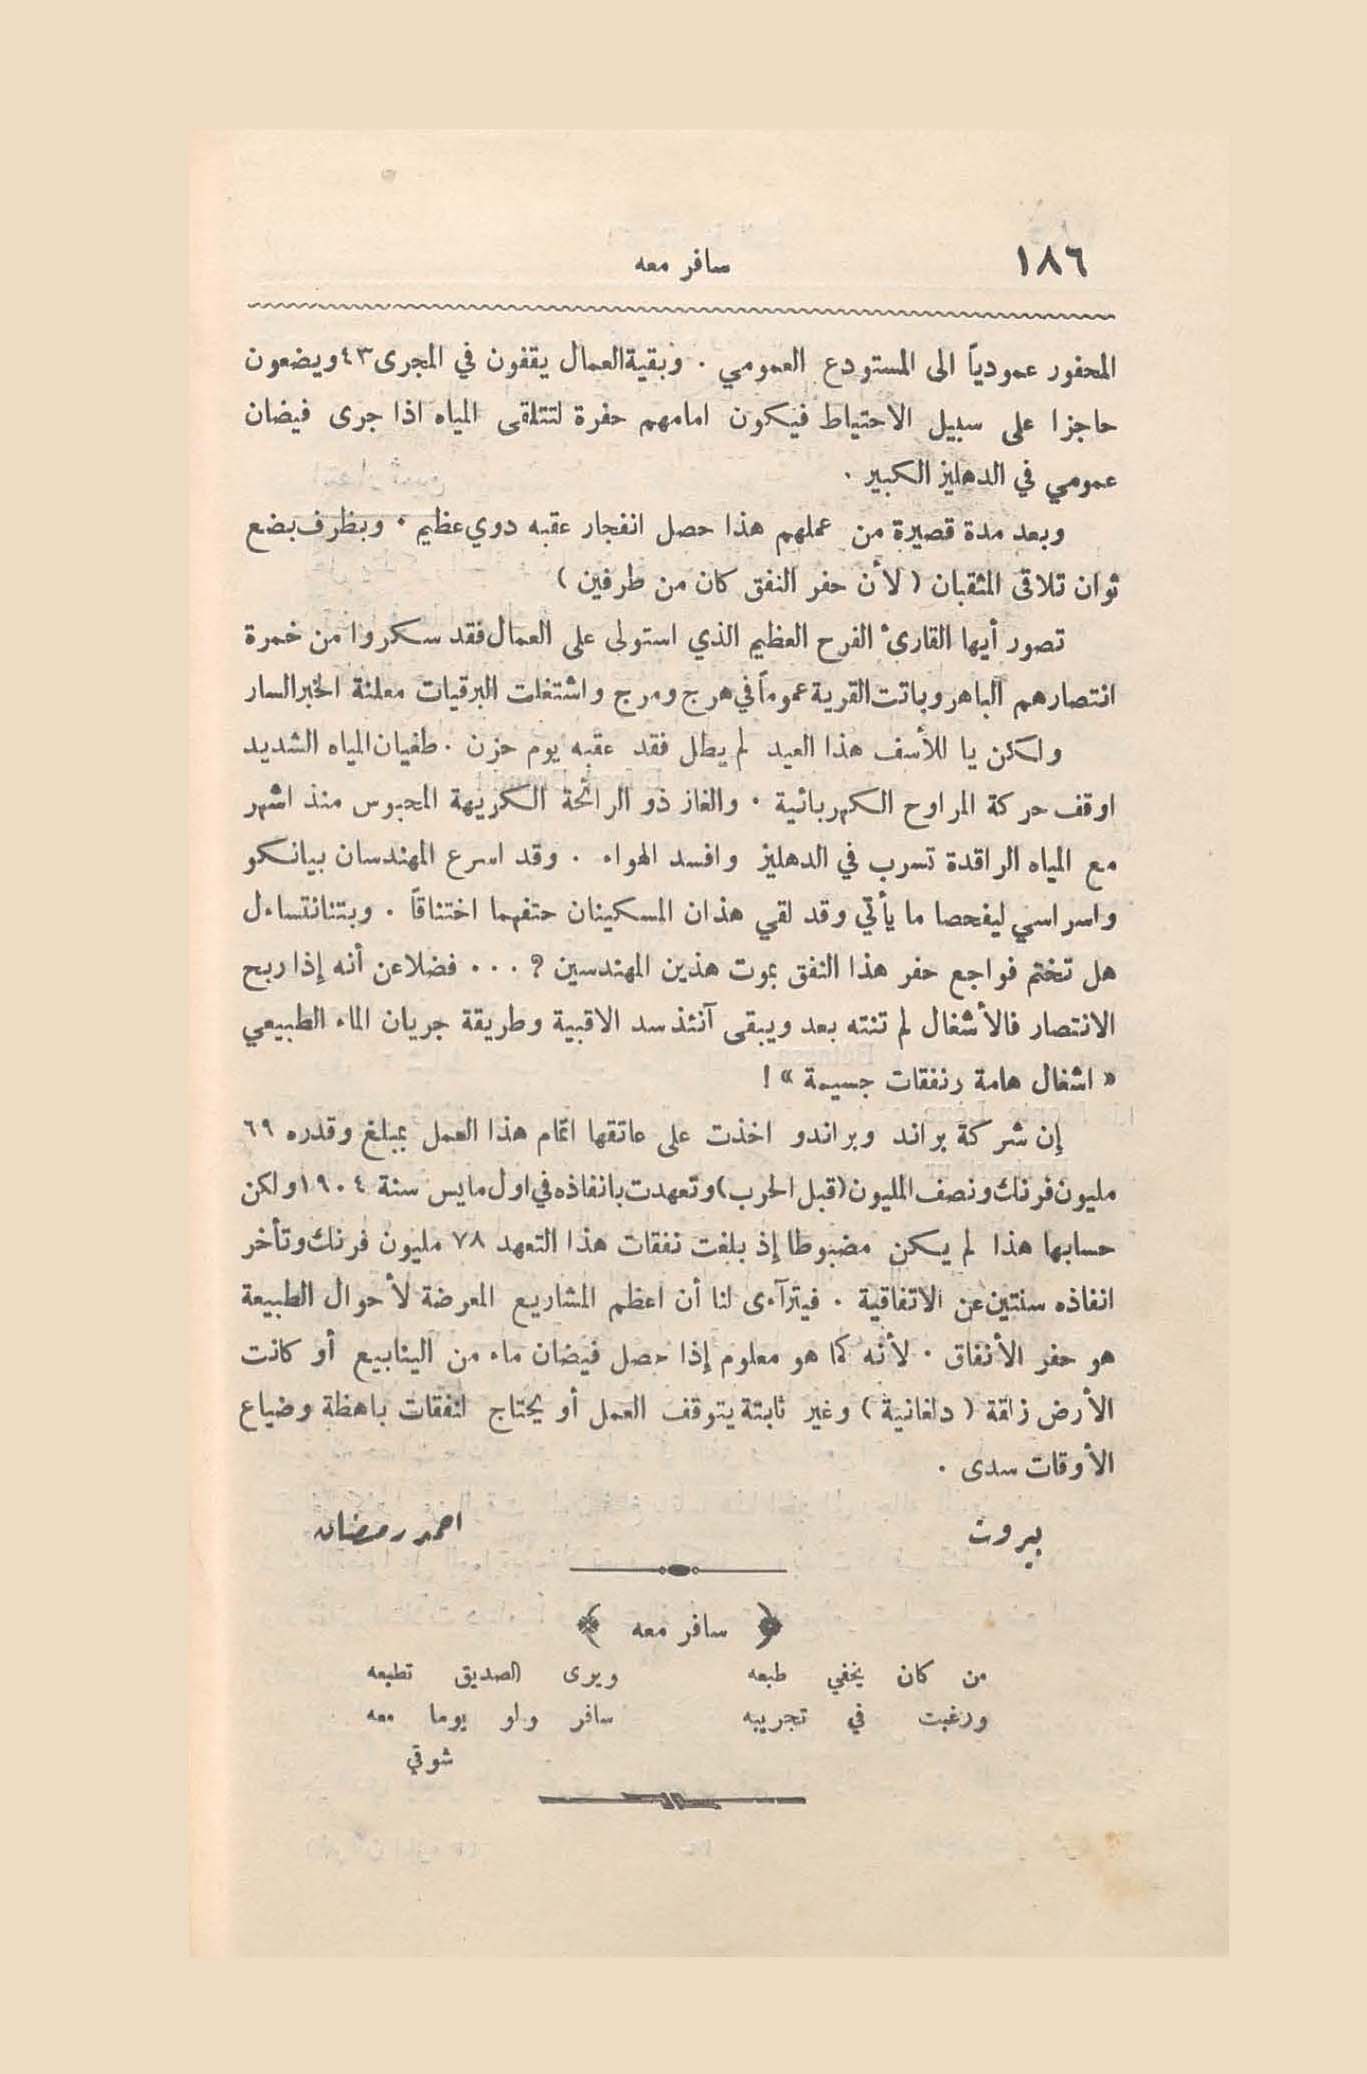 ١٨٦
سافر معه
المحفور عمودياً الى المستودع العمومي . وبقية العمال يقفون في المجرى ٤٣ ويضعون
حاجزا على سبيل الاحتياط فيكون امامهم حفرة لتتلقى المياه اذا جرى فيضان
عمومي في الدهليز الكبير .
وبعد مدة قصيرة من عملهم هذا حصل انفجار عقبه دوي عظيم . وبظرف بضع
ثوان تلاقى المثقبان ( لأن حفر النفق كان من طرفين )
تصور أيها القارئ الفرح العظيم الذي استولى على العمال فقد سكروا من خمرة
انتصارهم الباهر وباتت القرية عموماً في هرج ومرج واشتغلت البرقيات معلنة الخبر السار
ولكن يا للأسف هذا العيد لم يطل فقد عقبه يوم حزن . طغيان المياه الشديد
اوقف حركة المراوح الكهربائية . والغاز ذو الرائحة الكريهة المحبوس منذ اشهر
مع المياه الراقدة تسرب في الدهليز وافسد الهواء . وقد اسرع المهندسان بيانكو
واسراسي ليفحصا ما يأتي وقد لقي هذان المسكينان حتفهما اختناقاً . وبتنا نتساءل
هل تختم فواجع حفر هذا النفق بموت هذين المهندسين ? ... فضلا عن أنه إذا ربح
الانتصار فالأشغال لم تنته بعد ويبقى آنئذ سد الاقبية وطريقة جريان الماء الطبيعي
« اشغال هامة رنفقات جسيمة » !
إن شركة براند وبراندو اخذت على عاتقها اتمام هذا العمل بمبلغ وقدره ٦٩
مليون فرنك ونصف المليون (قبل الحرب) وتعهدت بانفاذه في اول مايس سنة ١٩٠٤ ولكن
حسابها هذا لم يكن مضبوطا إذ بلغت نفقات هذا التعهد ٧٨ مليون فرنك وتأخر
انفاذه سنتين عن الاتفاقية . فيترآءى لنا أن اعظم المشاريع المعرضة لأحوال الطبيعة
هو حفر الأنفاق . لأنه كما هو معلوم إذا حصل فيضان ماء من الينابيع أو كانت
الأرض زلقة ( دلغانية ) وغير ثابتة يتوقف العمل أو يحتاج لنفقات باهظة وضياع
الأوقات سدى .
بيروت احمد رمضان
﴿ سافر معه ﴾
من كان يخفي طبعه ويرى الصديق تطبعه
ورغبت في تجريبه سافر ولو يوما معه
شوقي